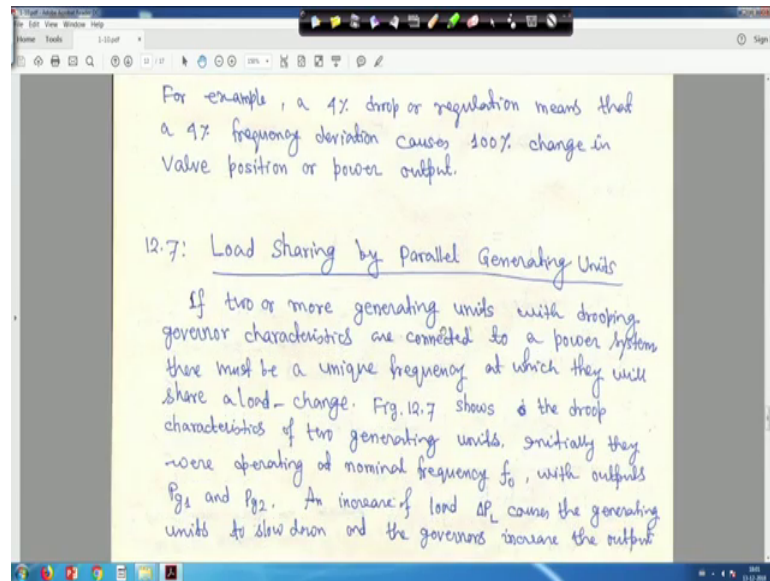 1-10.pdf - Adobe Acrobat Reader DC
File Edit View Window Help
Home Tools 1-10.pdf x
Sign
12 / 17
For example, a 4% drop or regulation means that
a 4% frequency deviation causes 100% change in
Valve position or power output.
12.7: Load Sharing by Parallel Generating Units
If two or more generating units with drooping
governor characteristics are connected to a power system
there must be a unique frequency at which they will
share a load-change. Fig. 12.7 shows the droop
characteristics of two generating units. Initially they
were operating at nominal frequency f₀, with outputs
Pg1 and Pg2. An increase of load ΔPL causes the generating
units to slow down and the governors increase the output